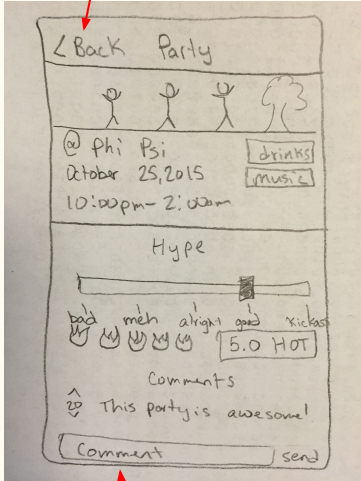 < Back Party
@ Phi Psi drinks
October 25, 2015 music
10:00pm - 2:00am
Hype
bad meh alright good kickass
5.0 HOT
Comments
20 This party is awesome!
Comment send